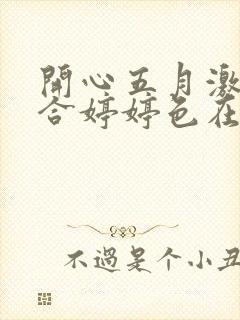 開心五月激
合婷婷色在
不過是个小丑